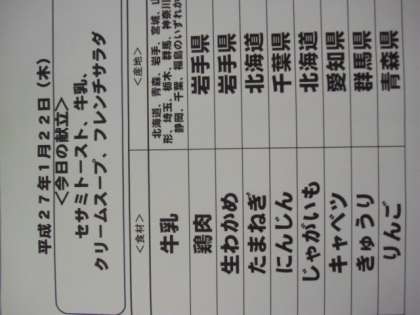 平成27年1月22日(木)
<今日の献立>
セサミトースト、牛乳、
クリームスープ、フレンチサラダ
<食材> <産地>
牛乳 北海道、青森、岩手、宮城、山
形、埼玉、栃木、群馬、神奈川
静岡、千葉、福島のいずれか
鶏肉 岩手県
生わかめ 岩手県
たまねぎ 北海道
にんじん 千葉県
じゃがいも 北海道
キャベツ 愛知県
きゅうり 群馬県
りんご 青森県